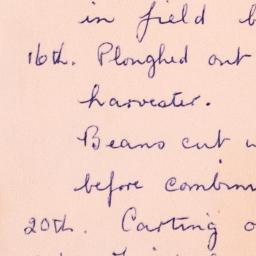 in field
16th. Ploughed out
harvester.
Beans cut
before
20th. Carting